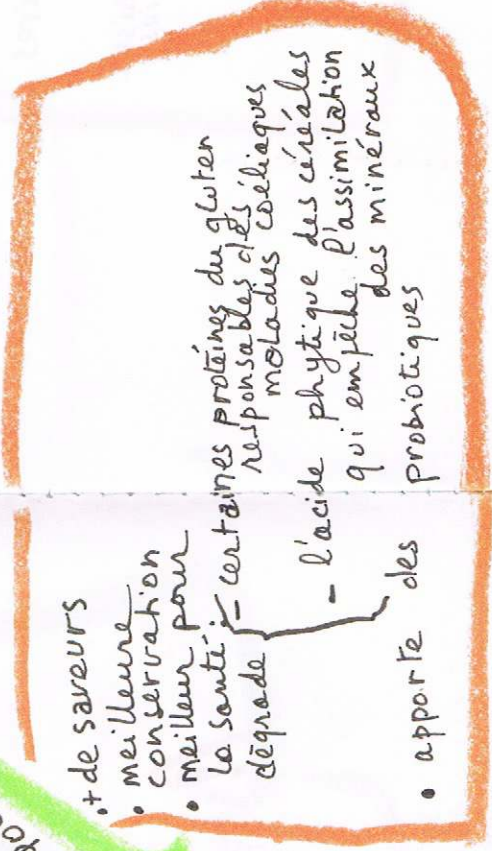 • + de saveurs
• meilleure
conservation
• meilleur pour
la santé :
dégrade
- certaines protéines du gluten
responsables des
maladies coéliaques
- l'acide phytique des céréales
qui empêche l'assimilation
des minéraux
• apporte des probiotiques